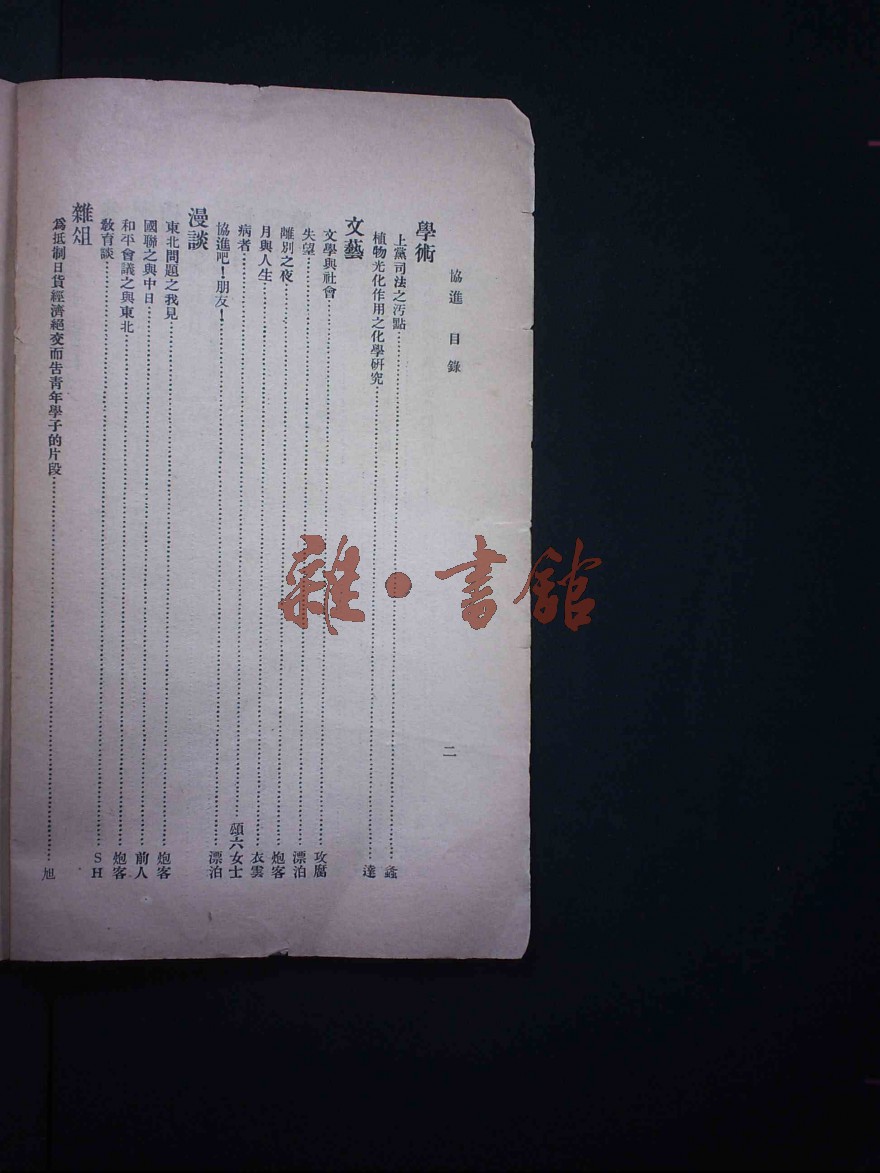 協進 目錄 二
學術
上黨司法之汚點…………蠡
植物光化作用之化學硏究…………達
文藝
文學與社會…………攻腐
失望…………漂泊
離別之夜…………炮客
月與人生…………衣雲
病者…………頌六女士
協進吧！朋友！…………漂泊
漫談
東北問題之我見…………炮客
國聯之與中日…………前人
和平會議之與東北…………炮客
敎育談…………SH
雜俎
爲抵制日貨經濟絕交而告靑年學子的片段…………旭
雜·書館